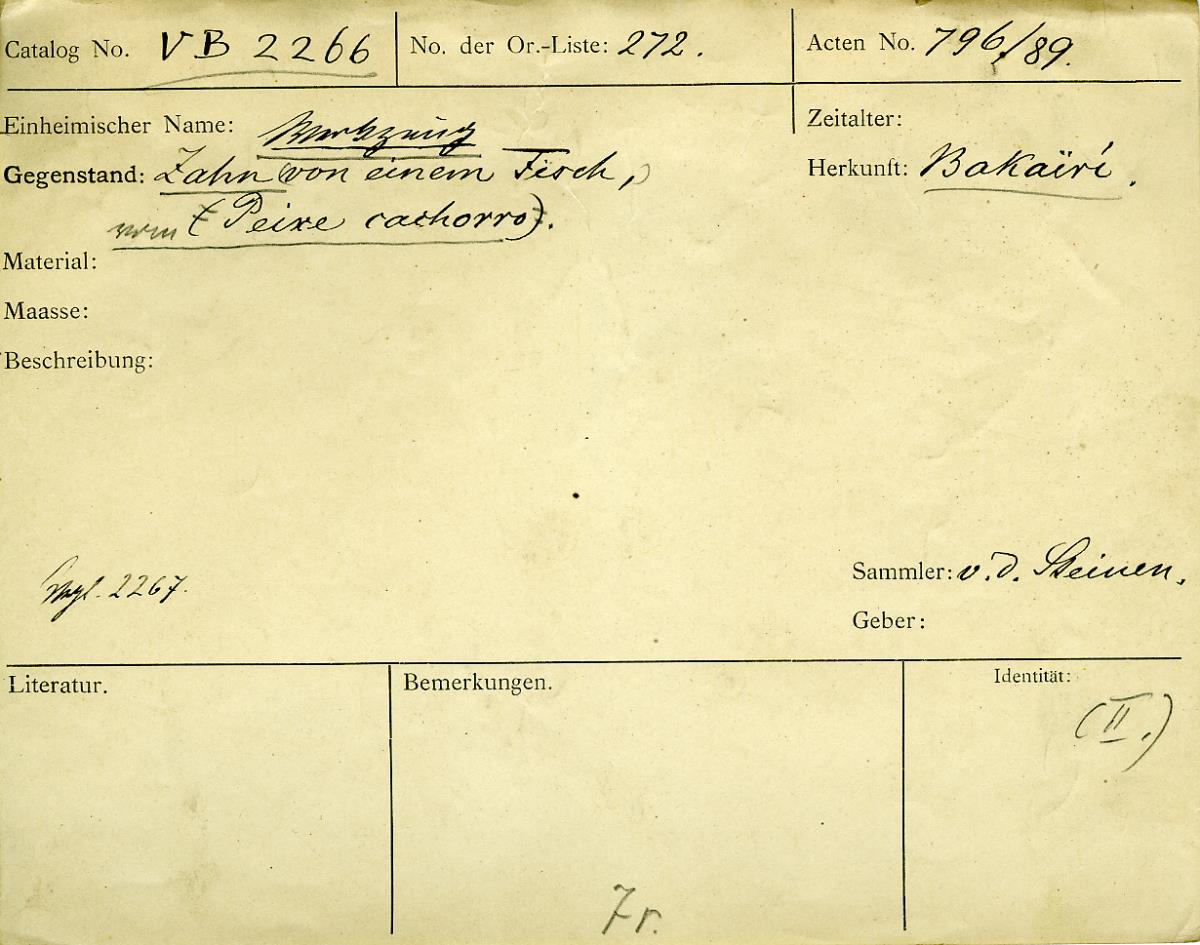 Catalog No. VB 2266 No. der Or.-Liste: 272. Acten No. 796/89.
Einheimischer Name: Zeitalter:
Werkzeug
Gegenstand: Zahn von einem Fisch, Herkunft: Bakaïrí.
vom (Peixe cachorro).
Material:
Maasse:
Beschreibung:
Vgl. 2267. Sammler: v. d. Steinen.
Geber:
Literatur. Bemerkungen. Identität:
(II.)
7 r.